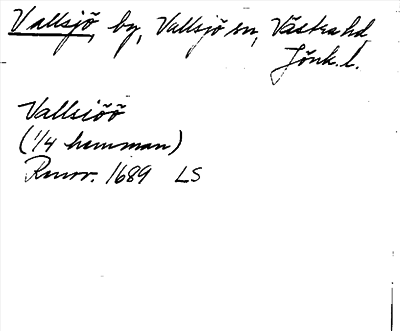 Vallsjö, by, Vallsjö sn, Västra hd,
Jönk. l.
Vallsiöö
(1/4 hemman)
Renov. 1689 LS